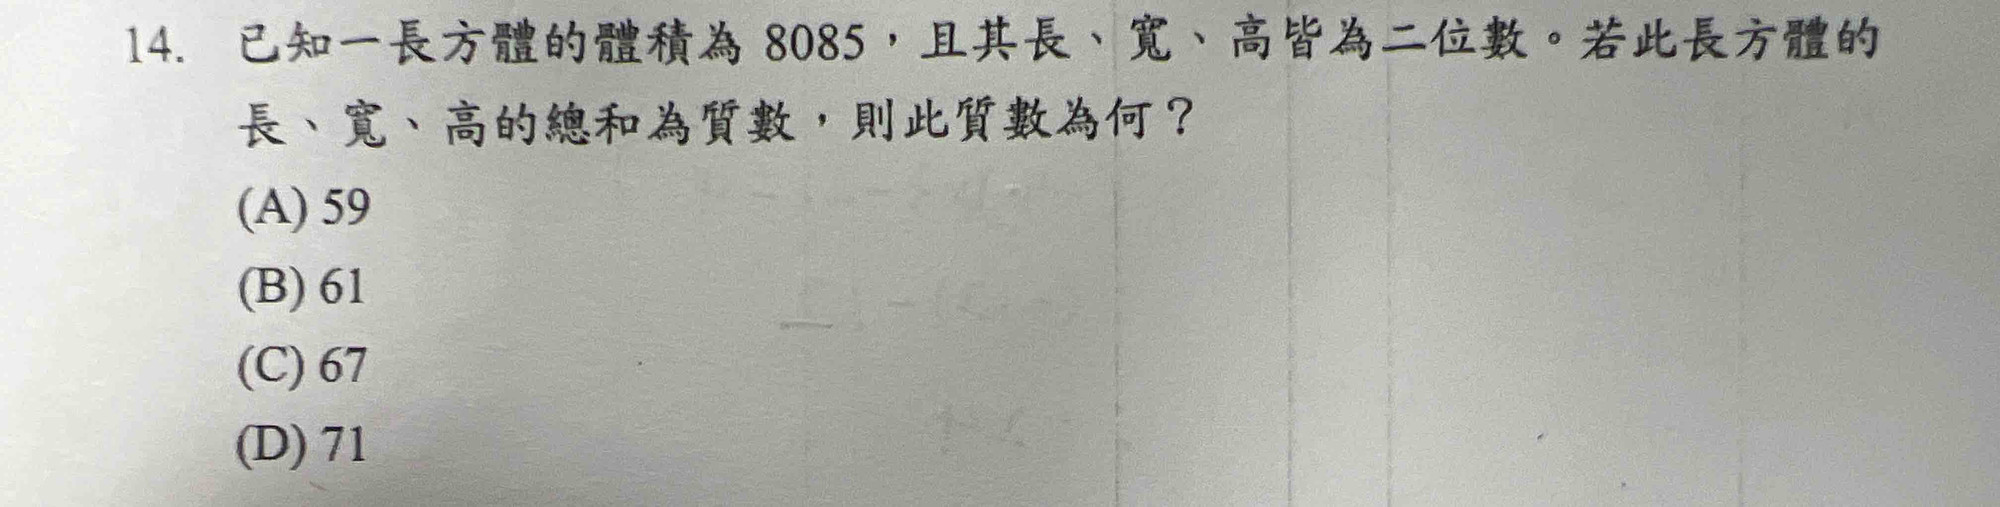 14. 已知一長方體的體積為 8085，且其長、寬、高皆為二位數。若此長方體的
長、寬、高的總和為質數，則此質數為何？
(A) 59
(B) 61
(C) 67
(D) 71